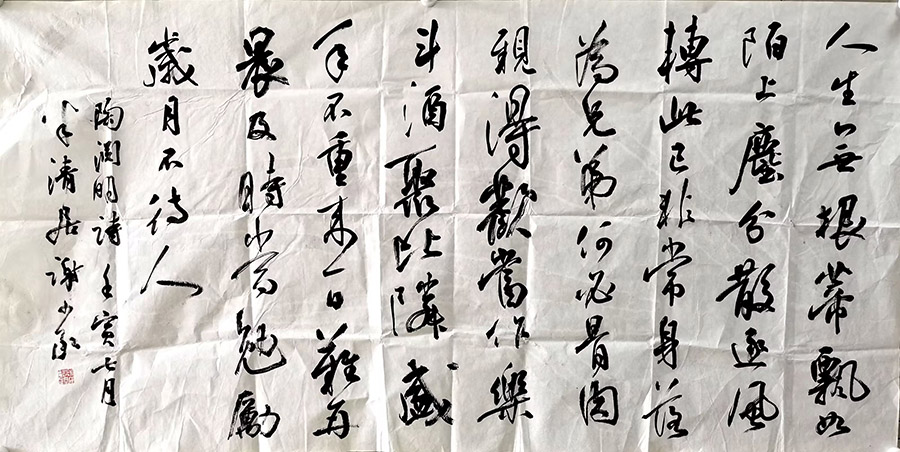 人生無根蒂飄如
陌上塵分散逐風
轉此已非常身落
為兄弟何必骨肉
親得歡當作樂
斗酒聚比隣盛
年不重來一日難再
晨及時當勉勵
歲月不待人
陶淵明詩壬寅七月
居謝少